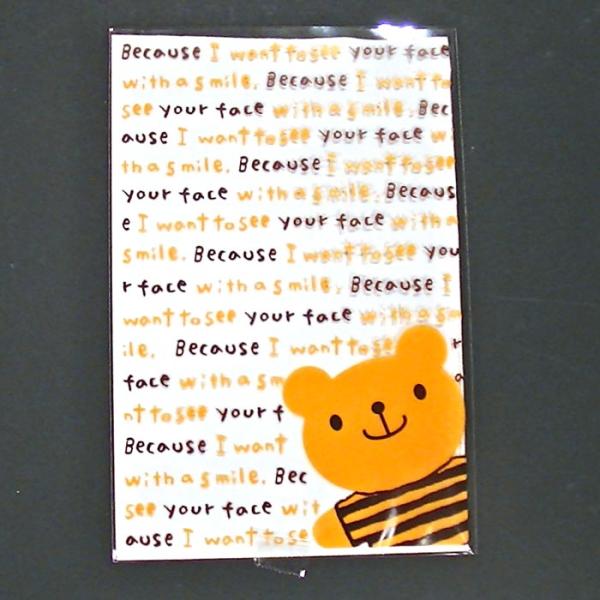 Because I want to see your face
with a smile. Because I want to
see your face with a smile. Bec
ause I want to see your face wi
th a smile. Because I want to see
your face with a smile. Becaus
e I want to see your face with a
smile. Because I want to see you
r face with a smile. Because I
want to see your face with a sm
ile. Because I want to see r
face with a sm a
nt to see your f
Because I want
with a smile. Bec
see your face wit
ause I want to se